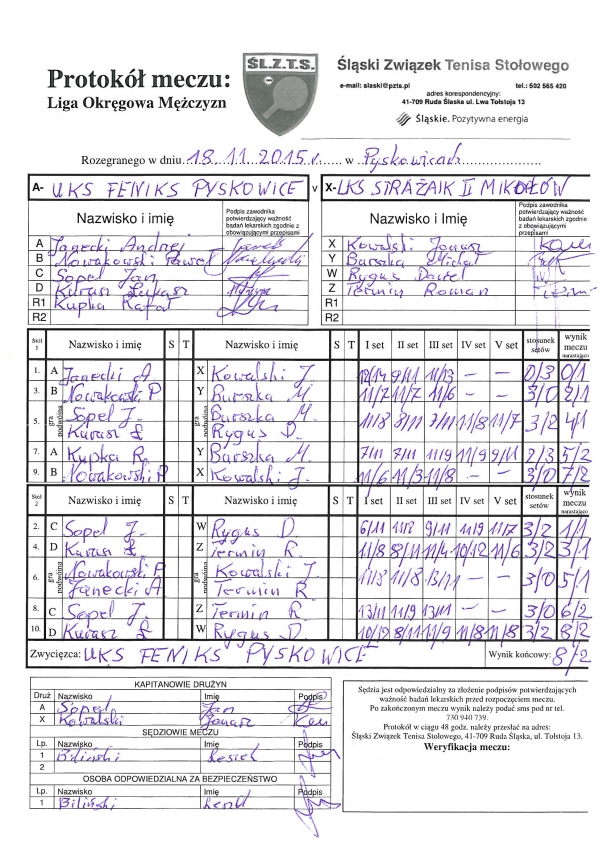 Protokół meczu:
Liga Okręgowa Mężczyzn
ŚL.Z.T.S.
Śląski Związek Tenisa Stołowego
e-mail: slaski@pzts.pl tel.: 502 565 420
adres korespondencyjny:
41-709 Ruda Śląska ul. Lwa Tołstoja 13
Śląskie. Pozytywna energia
Rozegranego w dniu 18.11.2015r. w Pyskowicach
A- UKS FENIKS PYSKOWICE v X- LKS STRAŻAK II MIKOŁÓW
Nazwisko i imię Podpis zawodnika potwierdzający ważność badań lekarskich zgodnie z obowiązującymi przepisami Nazwisko i Imię Podpis zawodnika potwierdzający ważność badań lekarskich zgodnie z obowiązującymi przepisami
A Janecki Andrzej X Kowalski Janusz
B Nowakowski Paweł Y Burszka Michał
C Sopel Jan W Rygus Dawid
D Kurasz Łukasz Z Termin Roman
R1 Kupka Rafał R1
R2 R2
Stół 1 Nazwisko i imię S T Nazwisko i imię S T I set II set III set IV set V set stosunek setów wynik meczu narastająco
1. A Janecki A X Kowalski J. 12/14 9/11 11/13 - - 0/3 0/1
3. B Nowakowski P Y Burszka M. 11/7 11/7 11/6 - - 3/0 2/1
5. gra podwójna Sopel J. gra podwójna Burszka M. 11/8 8/11 7/11 11/8 11/7 3/2 4/1
Kurasz Ł Rygus D.
7. A Kupka R. Y Burszka M. 7/11 11/7 11/9 9/11 2/3 5/2
9. B Nowakowski P X Kowalski J. 11/6 11/3 11/8 - - 3/0 7/2
Stół 2 Nazwisko i imię S T Nazwisko i imię S T I set II set III set IV set V set stosunek setów wynik meczu narastająco
2. C Sopel J. W Rygus D. 6/11 11/8 9/11 11/9 11/7 3/2 1/1
4. D Kurasz Ł. Z Termin R. 11/8 8/11 11/4 10/12 11/6 3/2 3/1
6. gra podwójna Nowakowski P. gra podwójna Kowalski J. 11/8 11/8 - - 3/0 5/1
Janecki A Termin R.
8. C Sopel J. Z Termin R. 13/11 11/9 13/11 - - 3/0 6/2
10. D Kurasz Ł W Rygus D. 10/12 8/11 11/9 11/8 11/8 3/2 8/2
Zwycięzca: UKS FENIKS PYSKOWICE Wynik końcowy: 8/2
KAPITANOWIE DRUŻYN
Druż Nazwisko Imię Podpis
A Sopel Jan
X Kowalski Janusz
SĘDZIOWIE MECZU
Lp. Nazwisko Imię Podpis
1 Biliński
2
OSOBA ODPOWIEDZIALNA ZA BEZPIECZEŃSTWO
Lp. Nazwisko Imię Podpis
1 Biliński
Sędzia jest odpowiedzialny za złożenie podpisów potwierdzających
ważność badań lekarskich przed rozpoczęciem meczu.
Po zakończonym meczu wynik należy podać sms pod nr tel.
730 940 739.
Protokół w ciągu 48 godz. należy przesłać na adres:
Śląski Związek Tenisa Stołowego, 41-709 Ruda Śląska, ul. Tołstoja 13.
Weryfikacja meczu: